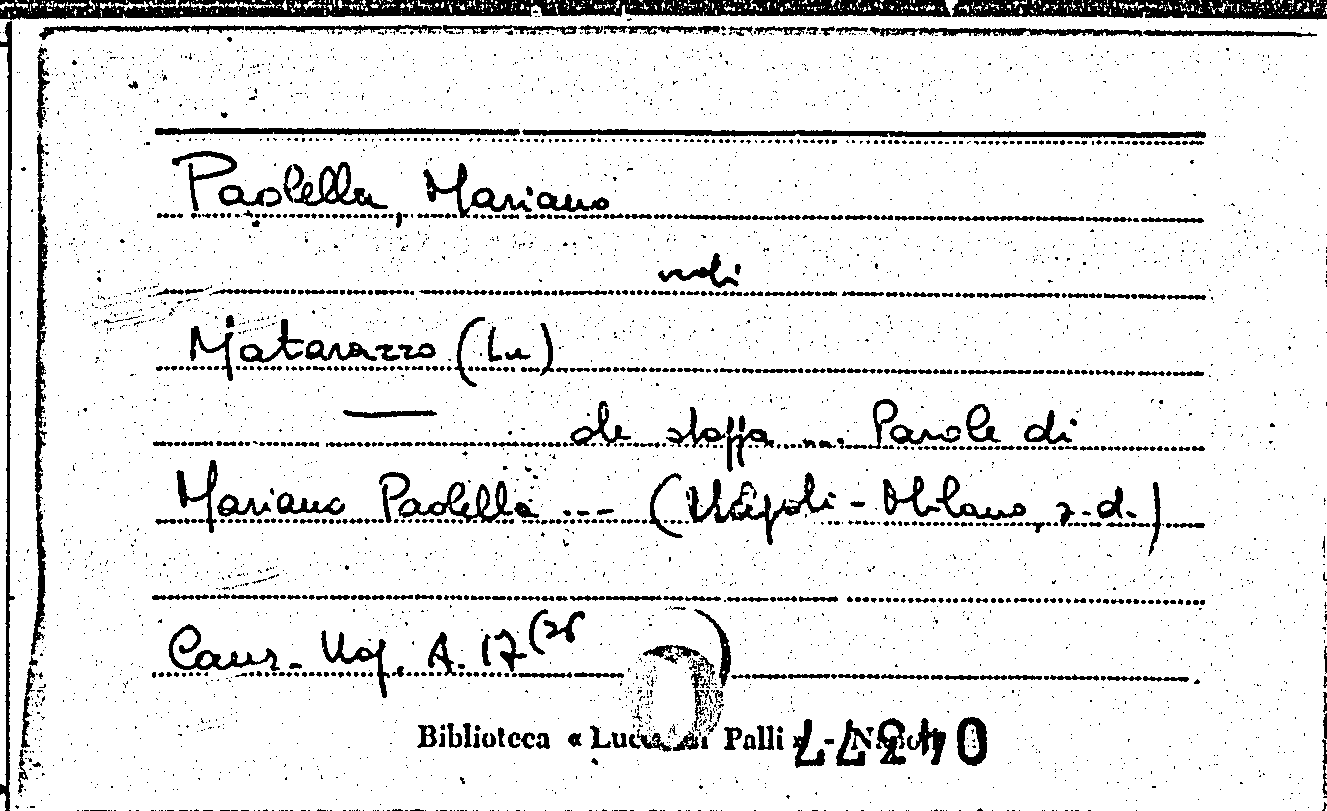 Paolella, Mariano
vedi
Matarazzo (Lu)
— de stoffa .... Parole di
Mariano Paolella ... (Napoli - Milano, s.d.)
Canz. Nap. A. 17 (26 )
Biblioteca « Lucchesi Palli » - Napoli